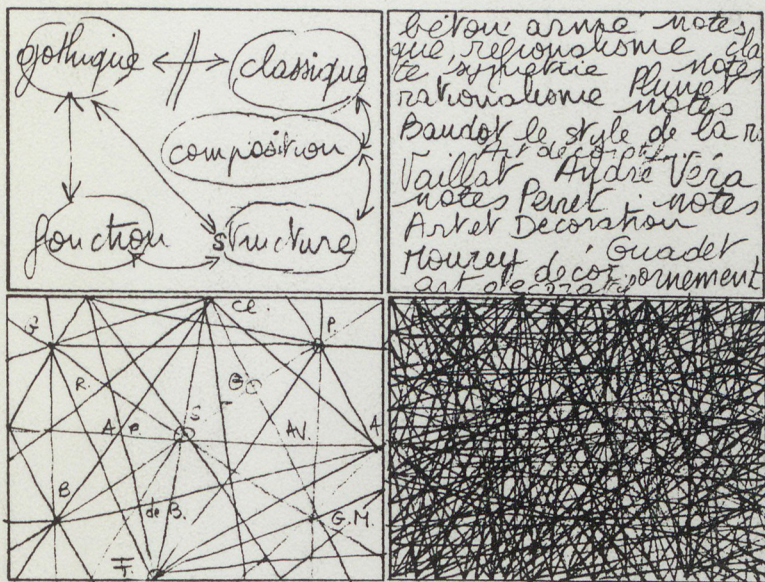 gothique
classique
composition
fonction
structure
béton armé notes
que, regionalisme cla
te symetrie notes
Plumet
rationalisme notes
Baudot le style de la r
Art decorat
Vaillat André Véra
notes Perret : notes
Art et Decoration
Mourey decor Guadet
ornement
art decorati
Cl.
G
P.
R.
S
A P.
AV.
A
B
de B.
G.M.